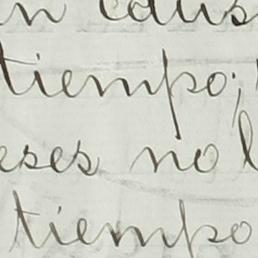 n caus
tiempo;
eses no l
tiempo